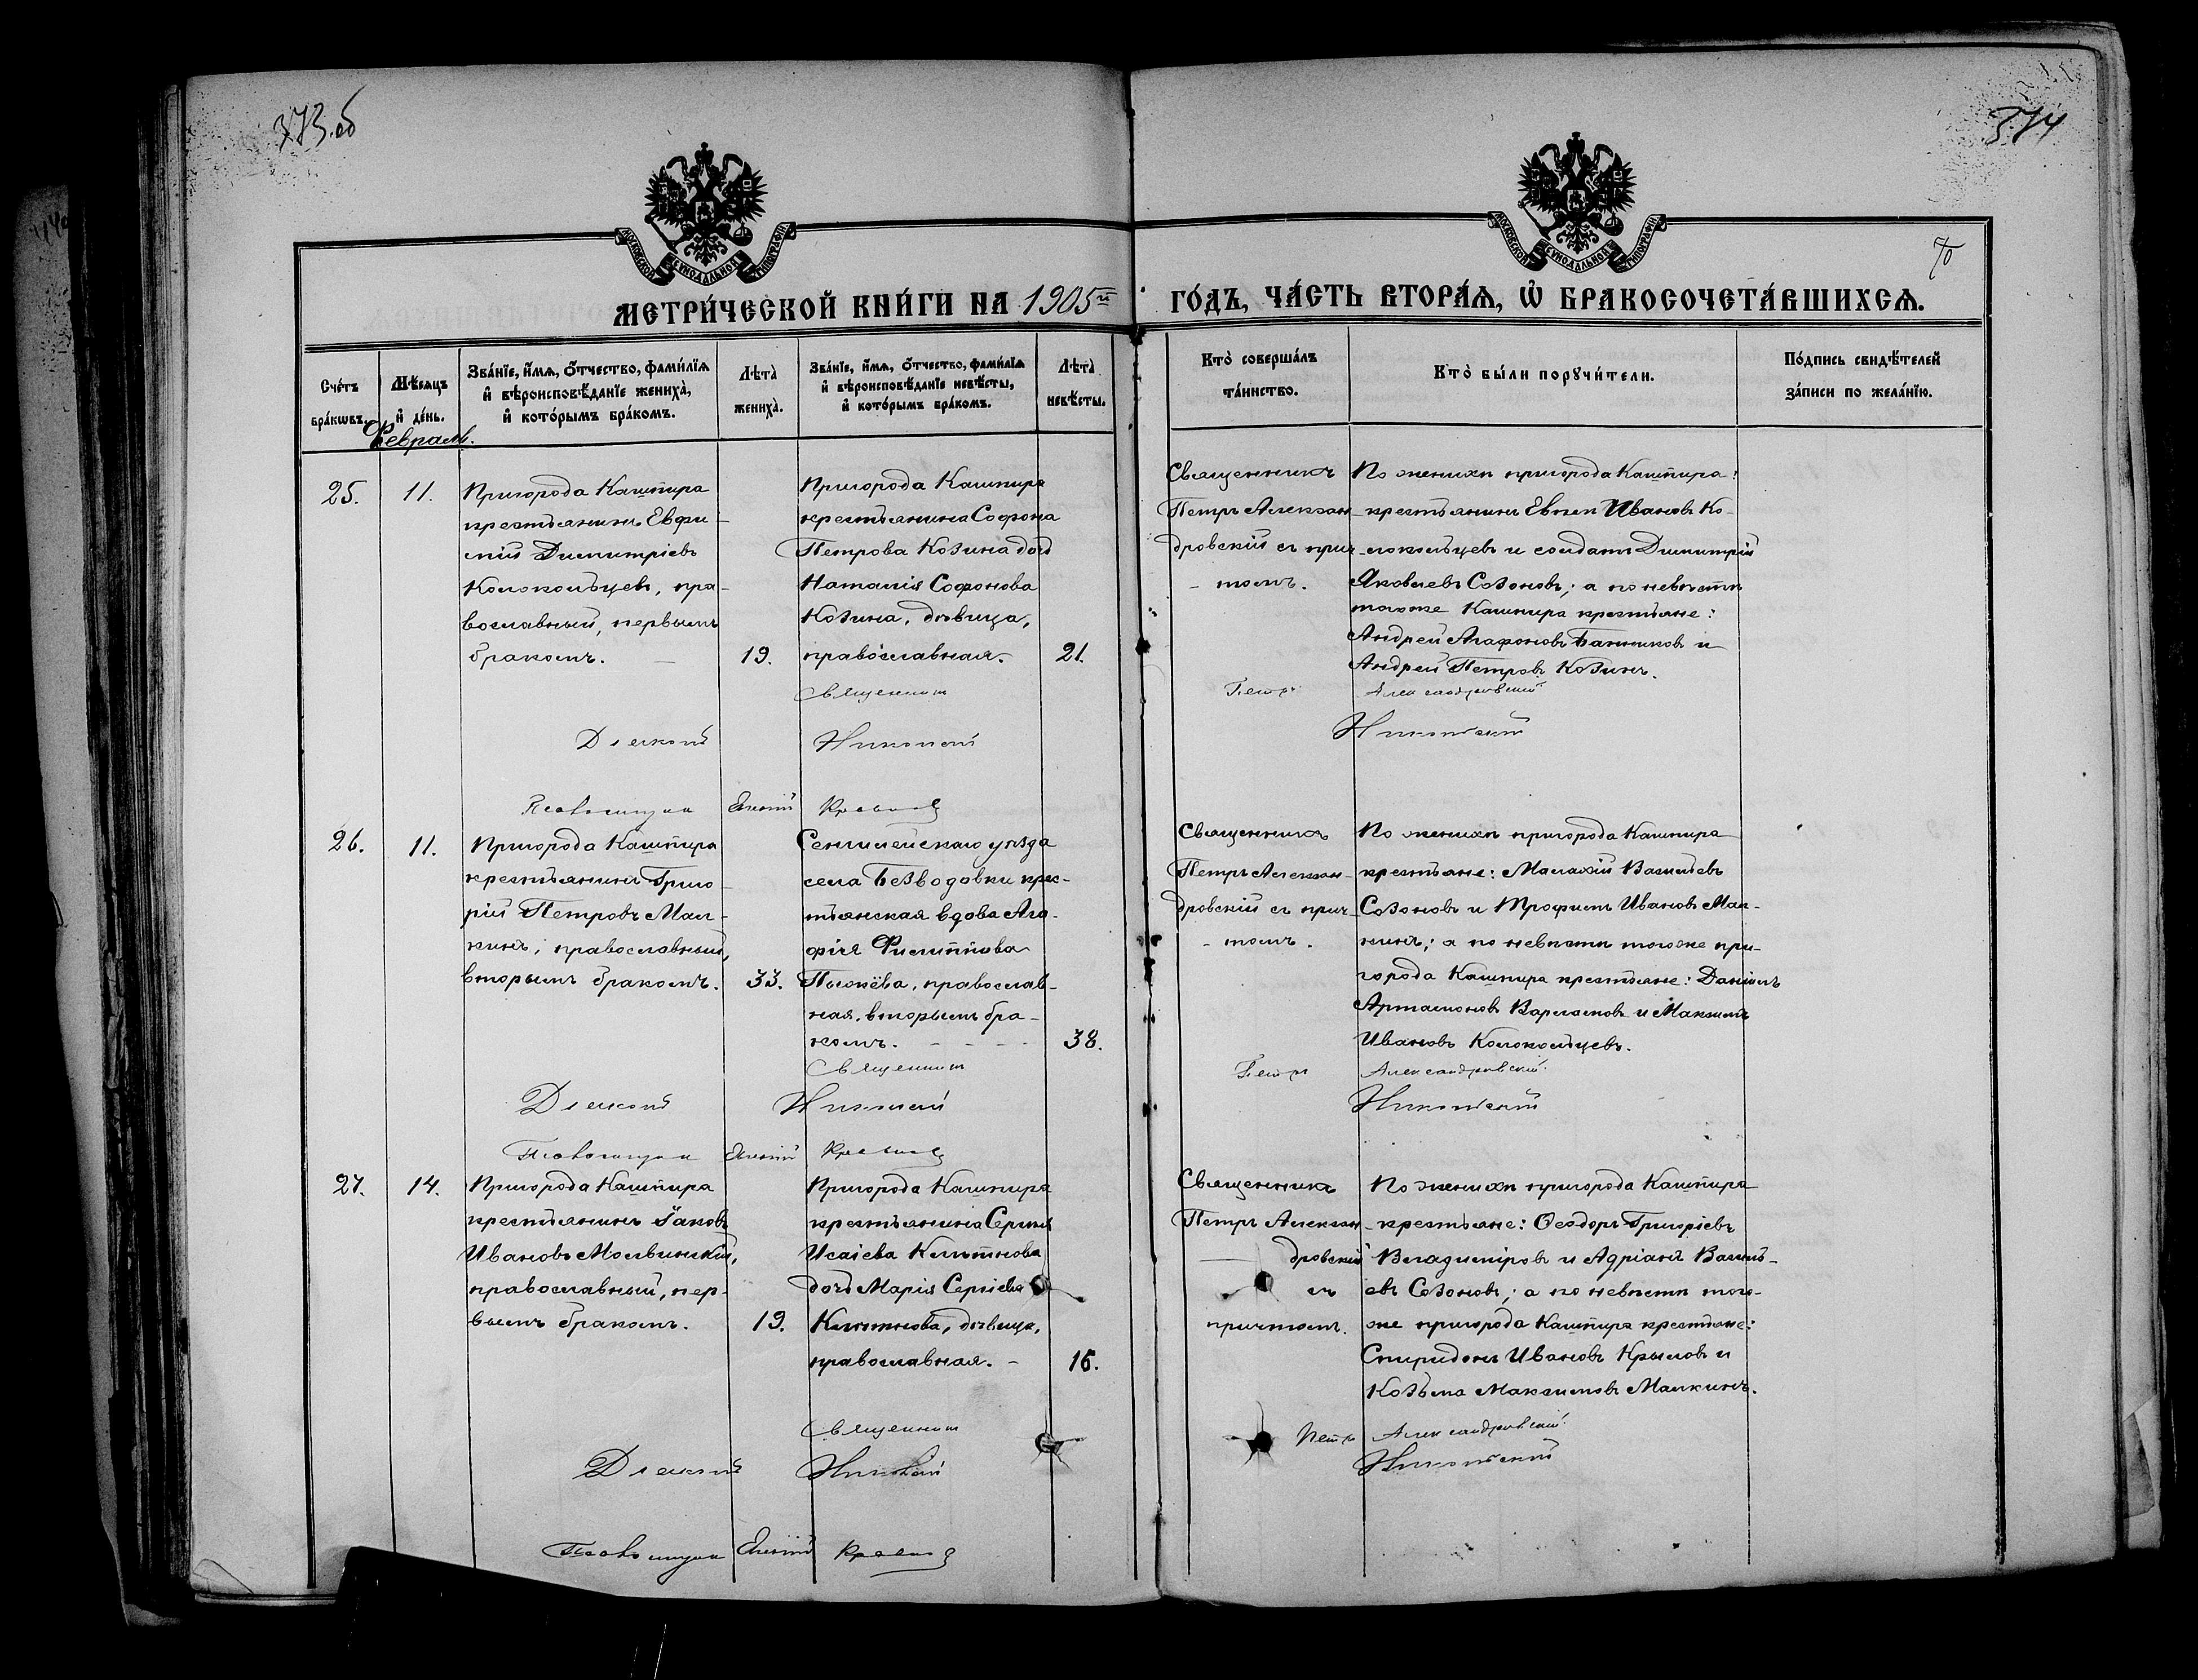 373.об
374
70
МОСКОВСКОЙ СѴНОДАЛЬНОЙ ТИПОГРАФІИ
МОСКОВСКОЙ СѴНОДАЛЬНОЙ ТИПОГРАФІИ
МЕТРИ́ЧЕСКОЙ КНИ́ГИ НА 1905й
ГО́ДЪ, ЧА́СТЬ ВТОРА́Ѧ, Ѡ БРАКОСОЧЕТА́ВШИХСѦ.
Сче́тъ бра́кѡвъ.
Мѣ́сѧцъ и де́нь.
Зва́нїе, и́мѧ, о́тчество, фами́лїѧ и вѣроисповѣ́данїе жениха̀, и кото́рымъ бра́комъ.
Лѣта̀ жениха̀.
Зва́нїе, и́мѧ, о́тчество, фами́лїѧ и вѣроисповѣ́данїе невѣ́сты, и кото́рымъ бра́комъ.
Лѣта̀ невѣ́сты.
Кто̀ соверша́лъ та́инство.
Кто̀ бы́ли порꙋчи́тели.
По́дпись свидѣ́телей за́писи по жела́нїю.
Февраль.
25.
11.
Пригорода Кашпира
крестьянинъ Евфи-
мій Димитріевъ
Колокольцевъ, пра-
вославный, первымъ
бракомъ.
19.
Пригорода Кашпира
крестьянина Софона
Петрова Козина дочь
Наталія Софонова
Козина, дѣвица,
православная.
21.
Священникъ
Петръ Алексан-
дровскій съ прич-
томъ.
По женихѣ пригорода Кашпира:
крестьянинъ Евгеній Ивановъ Ко-
локольцевъ и солдатъ Димитрій
Яковлевъ Созоновъ; а по невѣстѣ
тогоже Кашпира крестьяне:
Андрей Агафоновъ Банниковъ и
Андрей Петровъ Козинъ.
Священникъ Петръ Александровскій
Діаконъ Николай Никольскій
Псаломщикъ
26.
11.
Пригорода Кашпира
крестьянинъ Григо-
рій Петровъ Мал-
кинъ, православный,
вторымъ бракомъ.
33.
Сенгилейскаго уѣзда
села Безводовки крес-
тьянская вдова Ага-
фія Филиппова
православ-
ная, вторымъ бра-
комъ.
38.
Священникъ
Петръ Алексан-
дровскій съ прич-
томъ.
По женихѣ пригорода Кашпира
крестьяне: Малахій Васильевъ
Созоновъ и Трофимъ Ивановъ Мал-
кинъ; а по невѣстѣ тогоже при-
города Кашпира крестьяне: Даніилъ
Артамоновъ Варламовъ и Максимъ
Ивановъ Колокольцевъ.
Священникъ Петръ Александровскій
Діаконъ Николай Никольскій
Псаломщикъ
27.
14.
Пригорода Кашпира
крестьянинъ Іаковъ
Ивановъ Молвинскій,
православный, пер-
вымъ бракомъ.
19.
Пригорода Кашпира
крестьянина Сергія
Исаіева
дочь Марія Сергіева
дѣвица,
православная.
16.
Священникъ
Петръ Алексан-
дровскій
съ
причтомъ.
По женихѣ пригорода Кашпира
крестьяне: Ѳеодоръ Григоріевъ
Владиміровъ и Адріанъ Василь-
евъ Созоновъ; а по невѣстѣ того-
же пригорода Кашпира крестьяне:
Спиридонъ Ивановъ Крыловъ и
Козьма Максимовъ Малкинъ.
Священникъ Петръ Александровскій
Діаконъ Николай Никольскій
Псаломщикъ